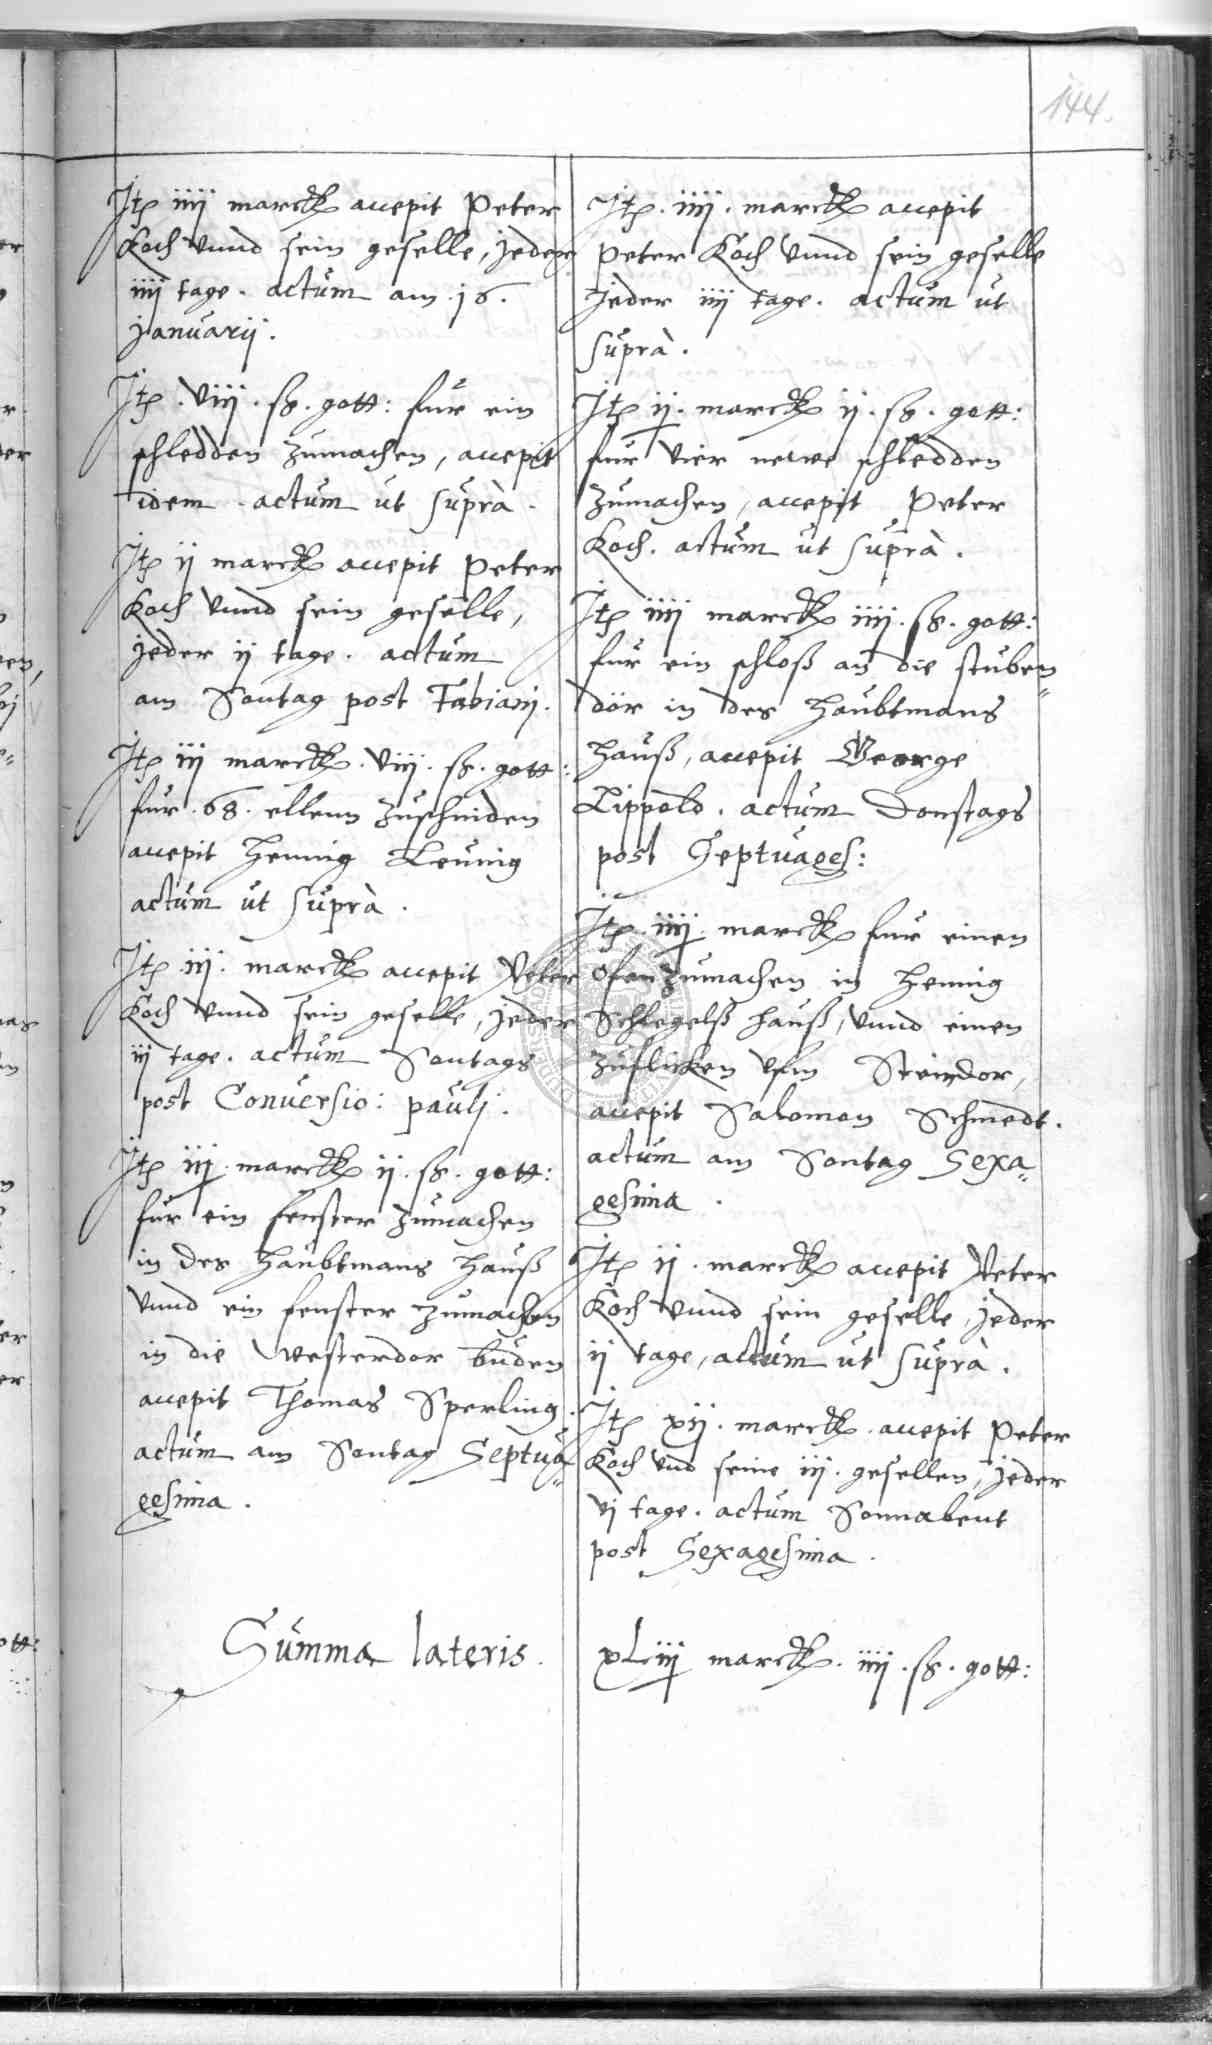 144.
Jtē iiij marck accepit Peter
Koch vnnd sein geselle, jeder
iiij tage. actum am .16.
januarij.
Jtē .viij. ß. gott: fur ein
schledden zumachen, accepit
idem. actum ut suprà.
Jtē ij marck accepit Peter
Koch vnnd sein geselle,
jeder ij tage. actum
am Sontag post Fabianj.
Jtē iij marck. viij. ß. gott:
fur .68. ellenn zuschniden
accepit Hennig Leunig
actum ut suprà.
Jtē iij. marck accepit Peter
Koch vnnd sein geselle, jeder
iij tage. actum Sontags
post Conuersio: paulj.
Jtē iij marck ij. ß. gott:
fur ein fenster zumachen
in des Haubtmans Hauß
vnnd ein fenster zumachen
in die Westerdor buden
accepit Thomas Sperling.
actum am Sontag Septua=
gesima.
Jtē. iiij. marck accepit
Peter Koch vnnd sein geselle
Jeder iiij tage. actum ut
suprà.
Jtē ij. marck ij. ß. gott:
fur vier newe schledden
zumachen, accepit Peter
Koch. actum ut suprà.
Jtē iiij marck iiij. ß. gott:
fur ein schloß an die stuben=
dör in des Haubtmans
Hauß, accepit George
Lippold. actum Donstags
post Septuages:
Jtē. iiij. marck fur einen
Ofen zumachen in Hennig
Schlegelß hauß, vnnd einen
zuflicken vfm Steindor,
accepit Salomon Schmedt.
actum am Sontag Sexa=
gesima.
Jtē ij. marck accepit Peter
Koch vnnd sein geselle, jeder
ij tage, actum ut suprà.
Jtē xij. marck. accepit Peter
Koch vnd seine iij. gesellen, jeder
vj tage. actum Sonnabent
post Sexagesima.
Summa lateris.
xLiij marck. iiij. ß. gott: